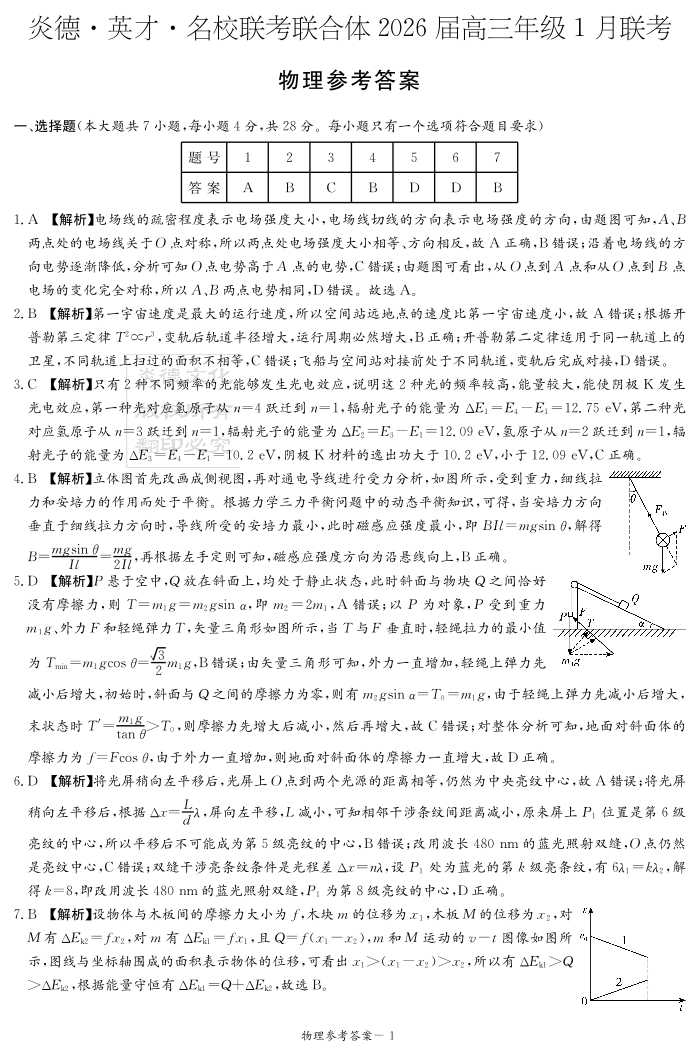 炎德·英才·名校联考联合体 2026 届高三年级 1 月联考
物理参考答案
一、选择题(本大题共 7 小题,每小题 4 分,共 28 分。每小题只有一个选项符合题目要求)
题 号 1 2 3 4 5 6 7
答 案 A B C B D D B
1. A 【解析】电场线的疏密程度表示电场强度大小,电场线切线的方向表示电场强度的方向,由题图可知,A、B
两点处的电场线关于 O 点对称,所以两点处电场强度大小相等、方向相反,故 A 正确,B 错误;沿着电场线的方
向电势逐渐降低,分析可知 O 点电势高于 A 点的电势,C 错误;由题图可看出,从 O 点到 A 点和从 O 点到 B 点
电场的变化完全对称,所以 A、B 两点电势相同,D 错误。故选 A。
2. B 【解析】第一宇宙速度是最大的运行速度,所以空间站远地点的速度比第一宇宙速度小,故 A 错误;根据开
普勒第三定律 T²∝r³,变轨后轨道半径增大,运行周期必然增大,B 正确;开普勒第二定律适用于同一轨道上的
卫星,不同轨道上扫过的面积不相等,C 错误;飞船与空间站对接前处于不同轨道,变轨后完成对接,D 错误。
3. C 【解析】只有 2 种不同频率的光能够发生光电效应,说明这 2 种光的频率较高,能量较大,能使阴极 K 发生
光电效应,第一种光对应氢原子从 n=4 跃迁到 n=1,辐射光子的能量为 ΔE₁=E₄-E₁=12.75 eV,第二种光
对应氢原子从 n=3 跃迁到 n=1,辐射光子的能量为 ΔE₂=E₃-E₁=12.09 eV,氢原子从 n=2 跃迁到 n=1,辐
射光子的能量为 ΔE₃=E₄-E₁=10.2 eV,阴极 K 材料的逸出功大于 10.2 eV,小于 12.09 eV,C 正确。
4. B 【解析】立体图首先改画成侧视图,再对通电导线进行受力分析,如图所示,受到重力,细线拉
力和安培力的作用而处于平衡。根据力学三力平衡问题中的动态平衡知识,可得,当安培力方向
垂直于细线拉力方向时,导线所受的安培力最小,此时磁感应强度最小,即 BIl=mgsin θ,解得
B=mgsin θ/Il=mg/2Il,再根据左手定则可知,磁感应强度方向为沿悬线向上,B 正确。
5. D 【解析】P 悬于空中,Q 放在斜面上,均处于静止状态,此时斜面与物块 Q 之间恰好
没有摩擦力,则 T=m₁g=m₂gsin α,即 m₂=2m₁,A 错误;以 P 为对象,P 受到重力
m₁g、外力 F 和轻绳弹力 T,矢量三角形如图所示,当 T 与 F 垂直时,轻绳拉力的最小值
为 Tmin=m₁gcos θ=√3/2 m₁g,B 错误;由矢量三角形可知,外力一直增加,轻绳上弹力先
减小后增大,初始时,斜面与 Q 之间的摩擦力为零,则有 m₂gsin α=T₀=m₁g,由于轻绳上弹力先减小后增大,
末状态时 T′=m₁g/tan θ>T₀,则摩擦力先增大后减小,然后再增大,故 C 错误;对整体分析可知,地面对斜面体的
摩擦力为 f=Fcos θ,由于外力一直增加,则地面对斜面体的摩擦力一直增大,故 D 正确。
6. D 【解析】将光屏稍向左平移后,光屏上 O 点到两个光源的距离相等,仍然为中央亮纹中心,故 A 错误;将光屏
稍向左平移后,根据 Δx=L/d λ,屏向左平移,L 减小,可知相邻干涉条纹间距离减小,原来屏上 P₁ 位置是第 6 级
亮纹的中心,所以平移后不可能成为第 5 级亮纹的中心,B 错误;改用波长 480 nm 的蓝光照射双缝,O 点仍然
是亮纹中心,C 错误;双缝干涉亮条纹条件是光程差 Δx=nλ,设 P₁ 处为蓝光的第 k 级亮条纹,有 6λ₁=kλ₂,解
得 k=8,即改用波长 480 nm 的蓝光照射双缝,P₁ 为第 8 级亮纹的中心,D 正确。
7. B 【解析】设物体与木板间的摩擦力大小为 f,木块 m 的位移为 x₁,木板 M 的位移为 x₂,对
M 有 ΔEk2=fx₂,对 m 有 ΔEk1=fx₁,且 Q=f(x₁-x₂),m 和 M 运动的 v-t 图像如图所
示,图线与坐标轴围成的面积表示物体的位移,可看出 x₁>(x₁-x₂)>x₂,所以有 ΔEk1>Q
>ΔEk2,根据能量守恒有 ΔEk1=Q+ΔEk2,故选 B。
物理参考答案- 1